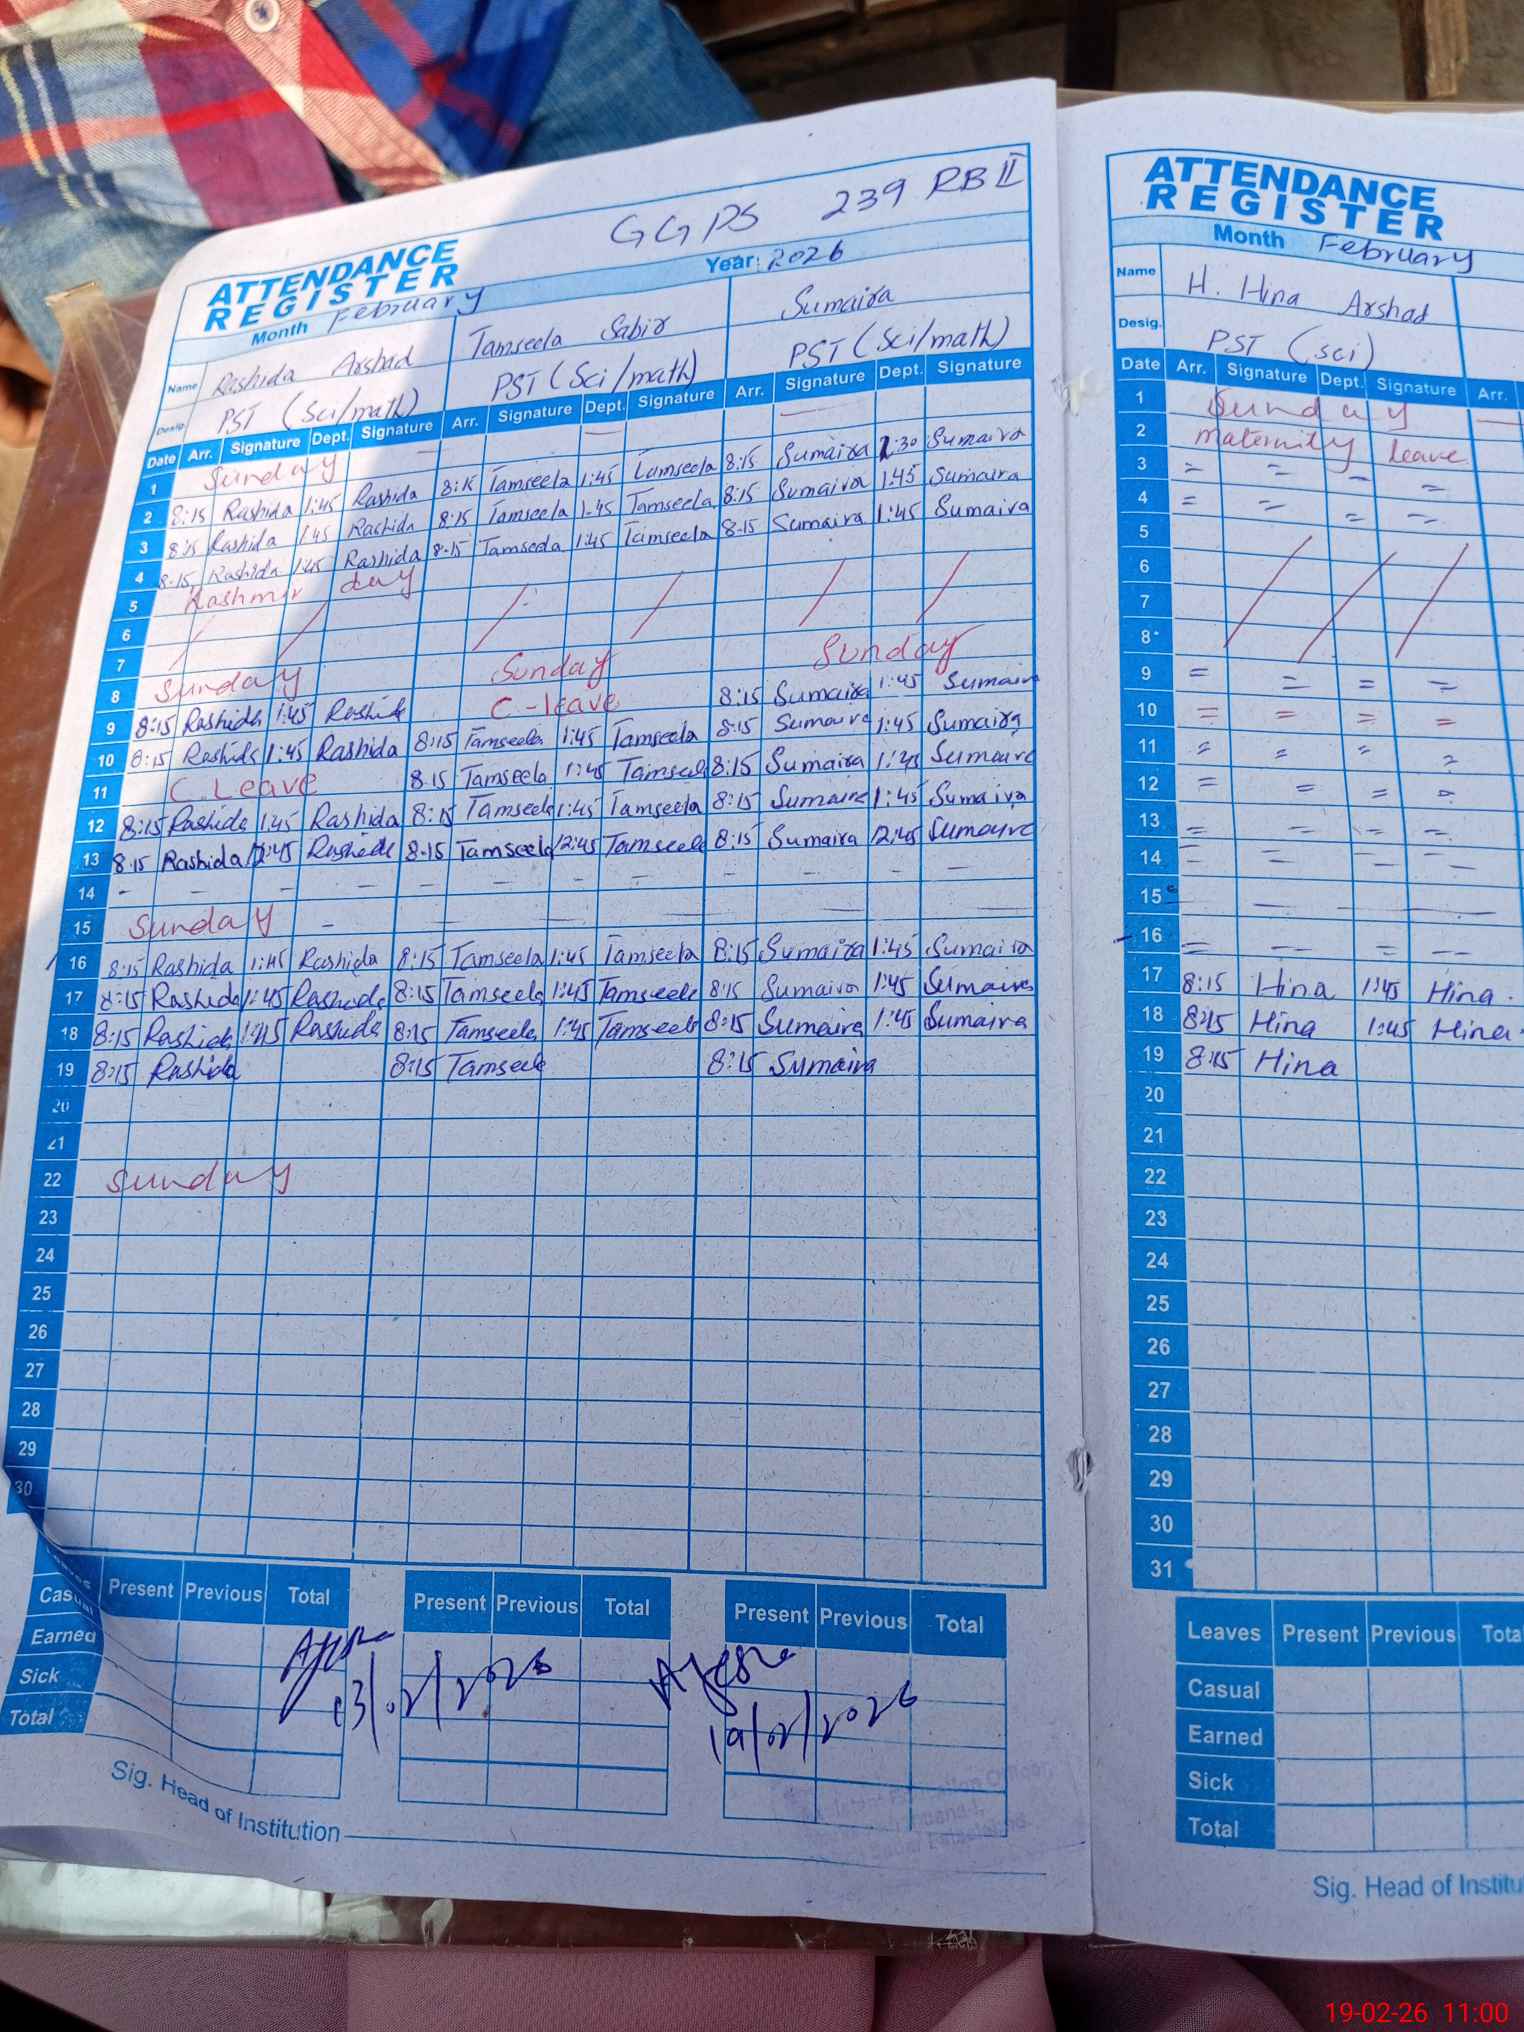 GGPS 239 RB II
ATTENDANCE
REGISTER
Month February Year: 2026
Name Rashida Arshad Tamseela Sabir Sumaira
Desig. PST (Sci/math) PST (Sci/math) PST (Sci/math)
Date Arr. Signature Dept. Signature Arr. Signature Dept. Signature Arr. Signature Dept. Signature
1 Sunday
2 8:15 Rashida 1:45 Rashida 8:15 Tamseela 1:45 Tamseela 8:15 Sumaira 1:30 Sumaira
3 8:15 Rashida 1:45 Rashida 8:15 Tamseela 1-45 Tamseela 8:15 Sumaira 1:45 Sumaira
4 8-15 Rashida 1:45 Rashida 8-15 Tamseela 1:45 Tamseela 8-15 Sumaira 1:45 Sumaira
5 Kashmir day
6
7
8 Sunday Sunday Sunday
9 8:15 Rashida 1:45 Rashida C-leave 8:15 Sumaira 1:45 Sumaira
10 8:15 Rashida 1:45 Rashida 8:15 Tamseela 1:45 Tamseela 8:15 Sumaira 1:45 Sumaira
11 C.Leave 8.15 Tamseela 1:45 Tamseela 8:15 Sumaira 1:45 Sumaira
12 8:15 Rashida 1:45 Rashida 8:15 Tamseela 1:45 Tamseela 8:15 Sumaira 1:45 Sumaira
13 8.15 Rashida 12:45 Rashida 8-15 Tamseela 12:45 Tamseela 8:15 Sumaira 12:45 Sumaira
14 - - - - - - - - - - - -
15 Sunday -
16 8:15 Rashida 1:45 Rashida 8:15 Tamseela 1:45 Tamseela 8:15 Sumaira 1:45 Sumaira
17 8:15 Rashida 1:45 Rashida 8:15 Tamseela 1:45 Tamseela 8:15 Sumaira 1:45 Sumaira
18 8:15 Rashida 1:45 Rashida 8:15 Tamseela 1:45 Tamseela 8:15 Sumaira 1:45 Sumaira
19 8:15 Rashida 8:15 Tamseela 8:15 Sumaira
20
21
22 Sunday
23
24
25
26
27
28
29
30
Present Previous Total Present Previous Total Present Previous Total
Casual
Earned
Sick
Total
13/02/2026
19/02/2026
Sig. Head of Institution
ATTENDANCE
REGISTER
Month February
Name H. Hina Arshad
Desig. PST (sci)
Date Arr. Signature Dept. Signature Arr.
1 Sunday
2 maternity leave
3 = = = =
4 = = = =
5
6
7
8
9 = = = =
10 = = = =
11 = = = =
12 = = = =
13 = = = =
14 = = = =
15
16 = = = =
17 8:15 Hina 1:45 Hina.
18 8:15 Hina 1:45 Hina.
19 8:15 Hina
20
21
22
23
24
25
26
27
28
29
30
31
Leaves Present Previous Total
Casual
Earned
Sick
Total
Sig. Head of Institu
19-02-26 11:00